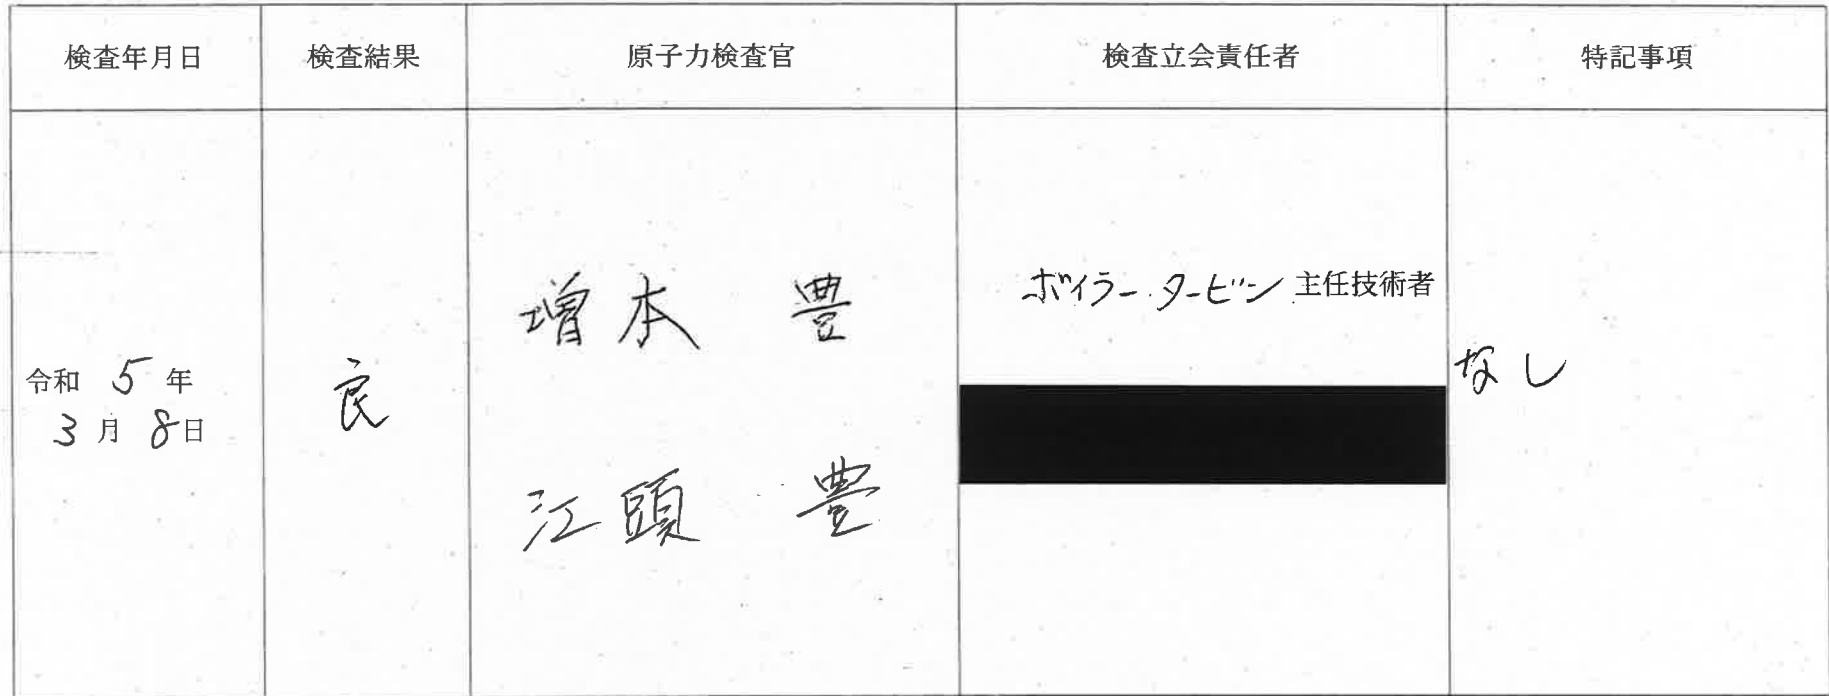 検査年月日 検査結果 原子力検査官 検査立会責任者 特記事項
令和 5 年
3 月 8日
良
増本 豊
江頭 豊
ボイラー・タービン 主任技術者
なし